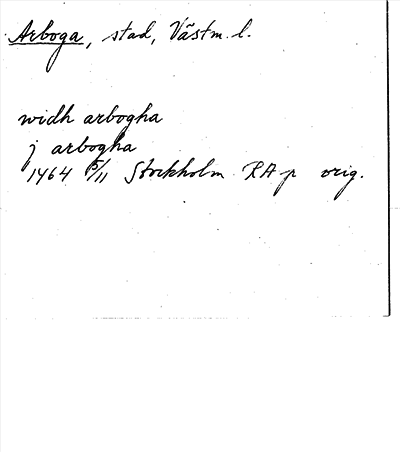 Arboga, stad, Västm. l.
widh arbogha
j arbogha
1464 5/11 Stockholm RA p orig.